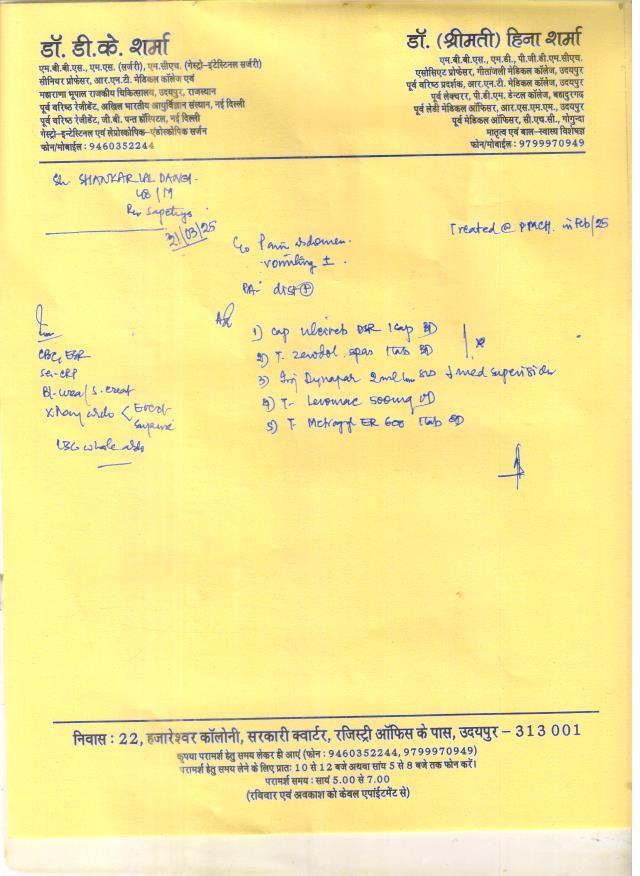 डॉ. डी.के. शर्मा
एम.बी.बी.एस., एम.एस. (सर्जरी), एम.सीएच. (गेस्ट्रो-इंटेस्टिनल सर्जरी)
सीनियर प्रोफेसर, आर.एन.टी. मेडिकल कॉलेज एवं
महाराणा भूपाल राजकीय चिकित्सालय, उदयपुर, राजस्थान
पूर्व वरिष्ठ रेजीडेंट, अखिल भारतीय आयुर्विज्ञान संस्थान, नई दिल्ली
पूर्व वरिष्ठ रेजीडेंट, जी.बी. पन्त हॉस्पिटल, नई दिल्ली
गेस्ट्रो-इन्टेस्टिनल एवं लेप्रोस्कोपिक-एंडोस्कोपिक सर्जन
फोन/मोबाईल : 9460352244
डॉ. (श्रीमती) हिना शर्मा
एम.बी.बी.एस., एम.डी., पी.जी.डी.एम.सीएच.
एसोसिएट प्रोफेसर, गीतांजली मेडिकल कॉलेज, उदयपुर
पूर्व वरिष्ठ प्रदर्शक, आर.एन.टी. मेडिकल कॉलेज, उदयपुर
पूर्व लेक्चरर, पी.डी.एम. डेन्टल कॉलेज, बहादुरगढ़
पूर्व लेडी मेडिकल ऑफिसर, आर.एस.एम.एम., उदयपुर
पूर्व मेडिकल ऑफिसर, सी.एच.सी., गोगुन्दा
मातृत्व एवं बाल-स्वास्थ्य विशेषज्ञ
फोन/मोबाईल : 9799970949
Sh. SHANKAR LAL DANGI-
48/M
31/03/25
Treated @ PMCH. in Feb/25
C/o Pain abdomen.
vomiting ±.
PA- dist +
Adv
1) Cap DSR 1cap
2) T. Zerodol spas 1tab
3) Inj Dynapar 2ml im sos med supervision
4) T- Levomac 500mg OD
5) T- Metrogyl ER 600 1tab
CBC, ESR
Se-CRP
Bl-urea/S. creat
X Ray abdo < Erect
Supine
USG whole abdo
निवास : 22, हजारेश्वर कॉलोनी, सरकारी क्वार्टर, रजिस्ट्री ऑफिस के पास, उदयपुर – 313 001
कृपया परामर्श हेतु समय लेकर ही आएं (फोन : 9460352244, 9799970949)
परामर्श हेतु समय लेने के लिए प्रातः 10 से 12 बजे अथवा सांय 5 से 8 बजे तक फोन करें।
परामर्श समय : सायं 5.00 से 7.00
(रविवार एवं अवकाश को केवल एपाईंटमेंट से)